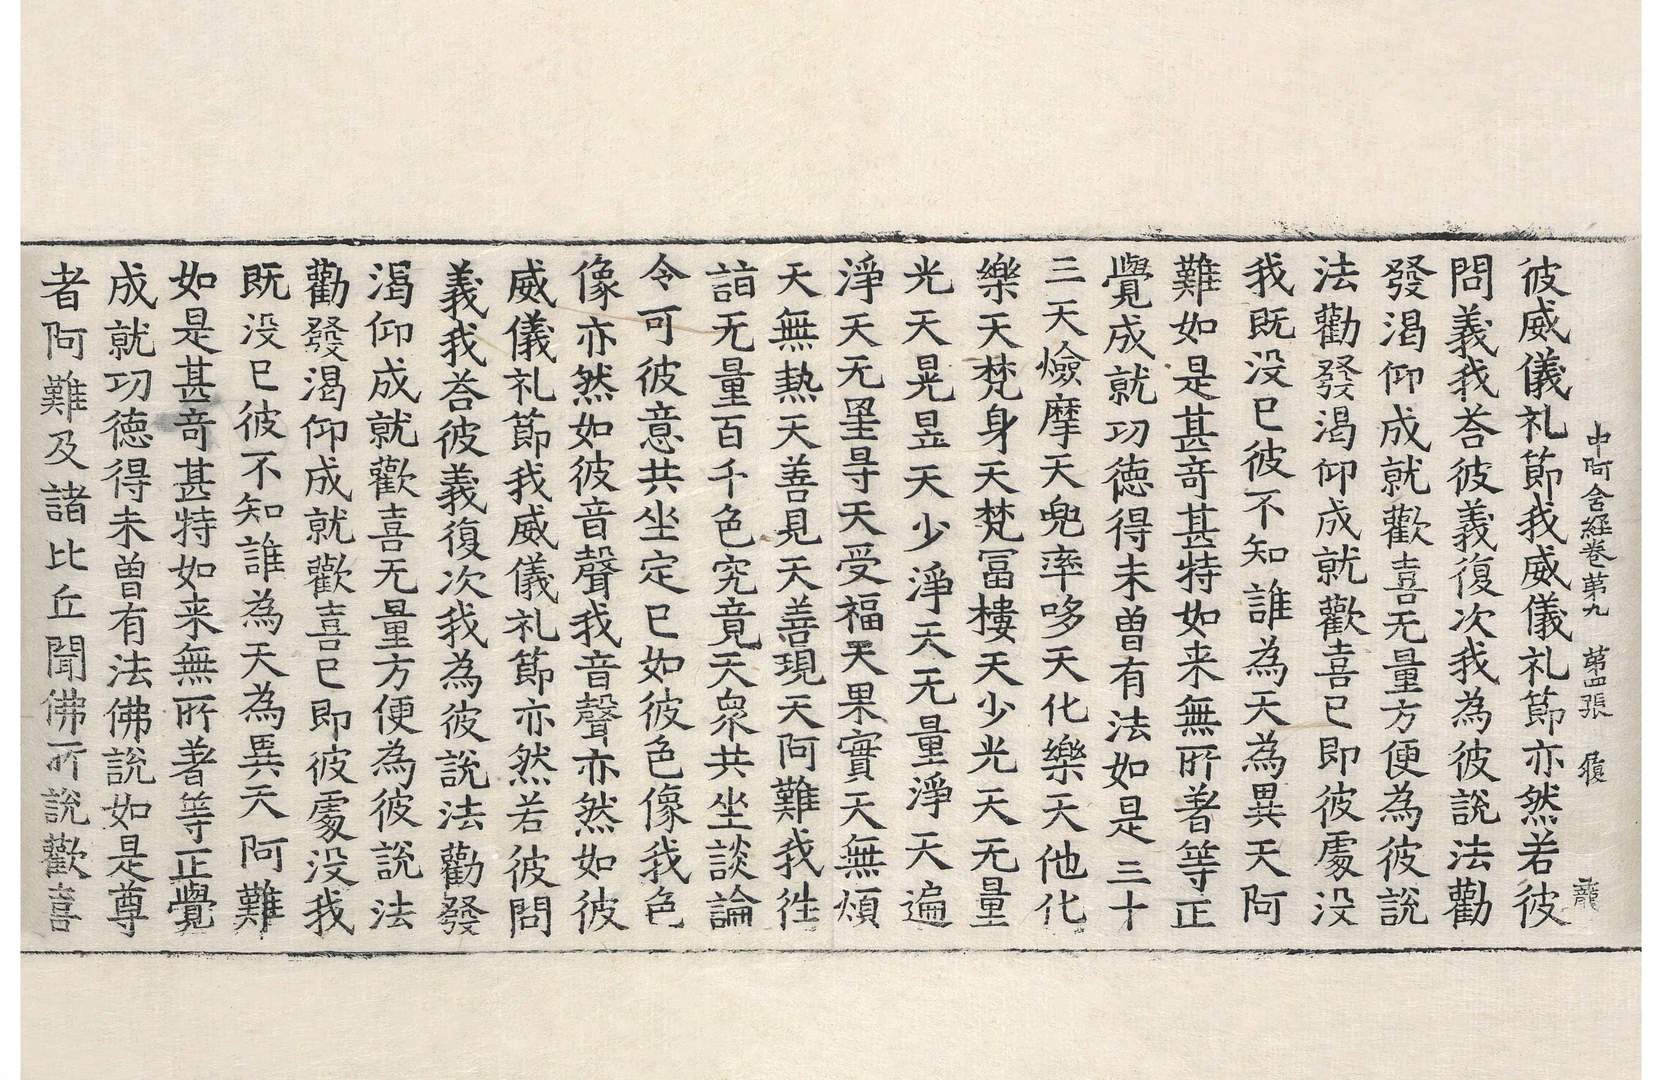 中阿含經卷第九　第四張　履
龍
彼威儀礼節我威儀礼節亦然若彼
問義我荅彼義復次我為彼說法勸
發渴仰成就歡喜无量方便為彼說
法勸發渴仰成就歡喜已即彼處没
我既没已彼不知誰為天為異天阿
難如是甚奇甚特如来無所著等正
覺成就功德得未曽有法如是三十
三天㷿摩天兜率哆天化樂天他化
樂天梵身天梵冨樓天少光天无量
光天晃昱天少淨天无量淨天遍
淨天无罣㝵天受福天果實天無煩
天無熱天善見天善現天阿難我徃
詣无量百千色究竟天衆共坐談論
令可彼意共坐定已如彼色像我色
像亦然如彼音聲我音聲亦然如彼
威儀礼節我威儀礼節亦然若彼問
義我荅彼義復次我為彼說法勸發
渴仰成就歡喜无量方便為彼說法
勸發渴仰成就歡喜已即彼處没我
既没已彼不知誰為天為異天阿難
如是甚奇甚特如来無所著等正覺
成就功德得未曽有法佛說如是尊
者阿難及諸比丘聞佛所說歡喜